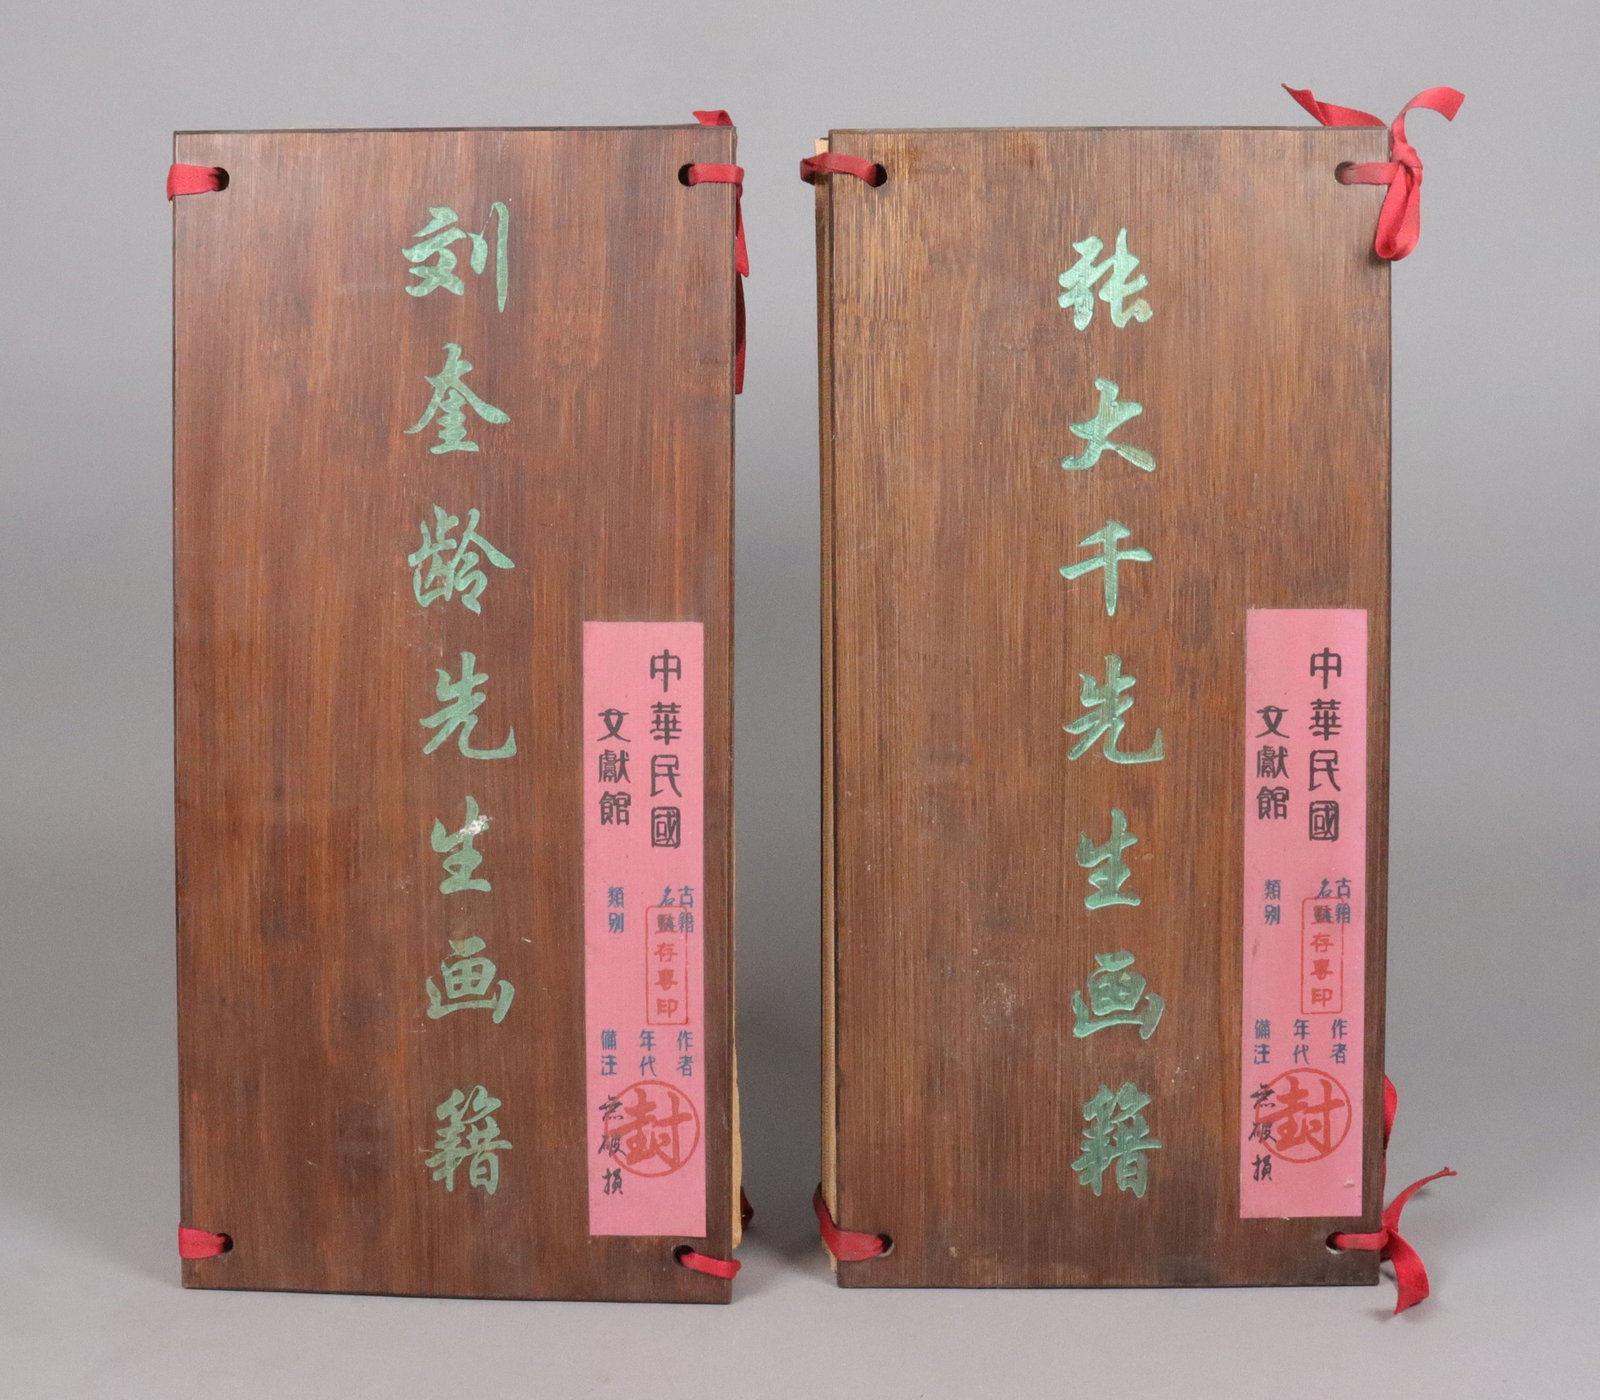 刘奎龄先生画籍
中華民國
文獻館
古籍
名
類别
存專印
作者
年代
備注
無破損
封
张大千先生画籍
中華民國
文獻館
古籍
名
類别
存專印
作者
年代
備注
無破損
封